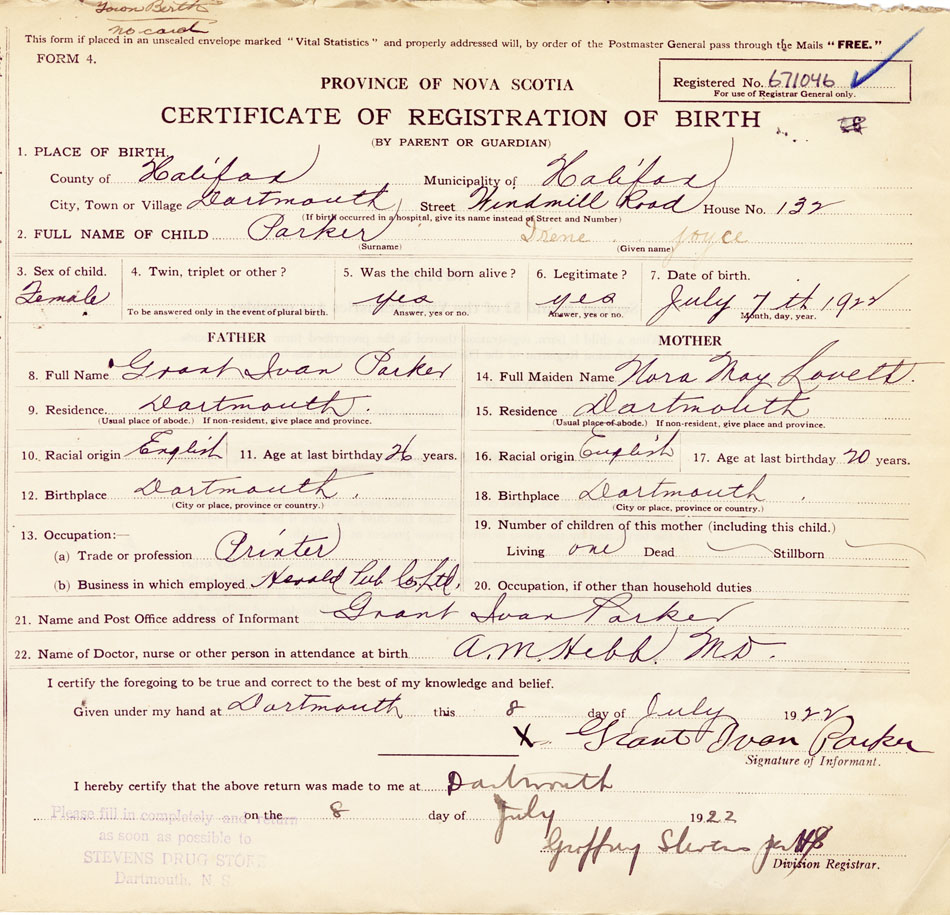 Town Berth
no card
This form if placed in an unsealed envelope marked "Vital Statistics" and properly addressed will, by order of the Postmaster General pass through the Mails "FREE."
FORM 4.
Registered No. 671046
For use of Registrar General only.
PROVINCE OF NOVA SCOTIA
CERTIFICATE OF REGISTRATION OF BIRTH
(BY PARENT OR GUARDIAN)
1. PLACE OF BIRTH.
County of Halifax Municipality of Halifax
City, Town or Village Dartmouth Street Windmill Road House No. 132
(If birth occurred in a hospital, give its name instead of Street and Number)
2. FULL NAME OF CHILD Parker Irene Joyce
(Surname) (Given name)
3. Sex of child. 4. Twin, triplet or other? 5. Was the child born alive? 6. Legitimate? 7. Date of birth.
Female yes yes July 7th 1922
To be answered only in the event of plural birth. Answer, yes or no. Answer, yes or no. Month, day, year.
FATHER MOTHER
8. Full Name Grant Ivan Parker 14. Full Maiden Name Nora May Lovett.
9. Residence. Dartmouth. 15. Residence Dartmouth
(Usual place of abode.) If non-resident, give place and province. (Usual place of abode.) If non-resident, give place and province.
10. Racial origin English 11. Age at last birthday 26 years. 16. Racial origin English 17. Age at last birthday 20 years.
12. Birthplace Dartmouth. 18. Birthplace Dartmouth.
(City or place, province or country.) (City or place, province or country.)
13. Occupation:— 19. Number of children of this mother (including this child.)
(a) Trade or profession Printer Living one Dead Stillborn
(b) Business in which employed Herald Pub Co Ltd. 20. Occupation, if other than household duties
21. Name and Post Office address of Informant Grant Ivan Parker
22. Name of Doctor, nurse or other person in attendance at birth A.M. Hebb. M.D.
I certify the foregoing to be true and correct to the best of my knowledge and belief.
Given under my hand at Dartmouth this 8 day of July 1922
X Grant Ivan Parker
Signature of Informant.
I hereby certify that the above return was made to me at Dartmouth
on the 8 day of July 1922
Please fill in completely and return
as soon as possible to
STEVENS DRUG STORE
Dartmouth, N. S.
Geoffrey Stevens
Division Registrar.